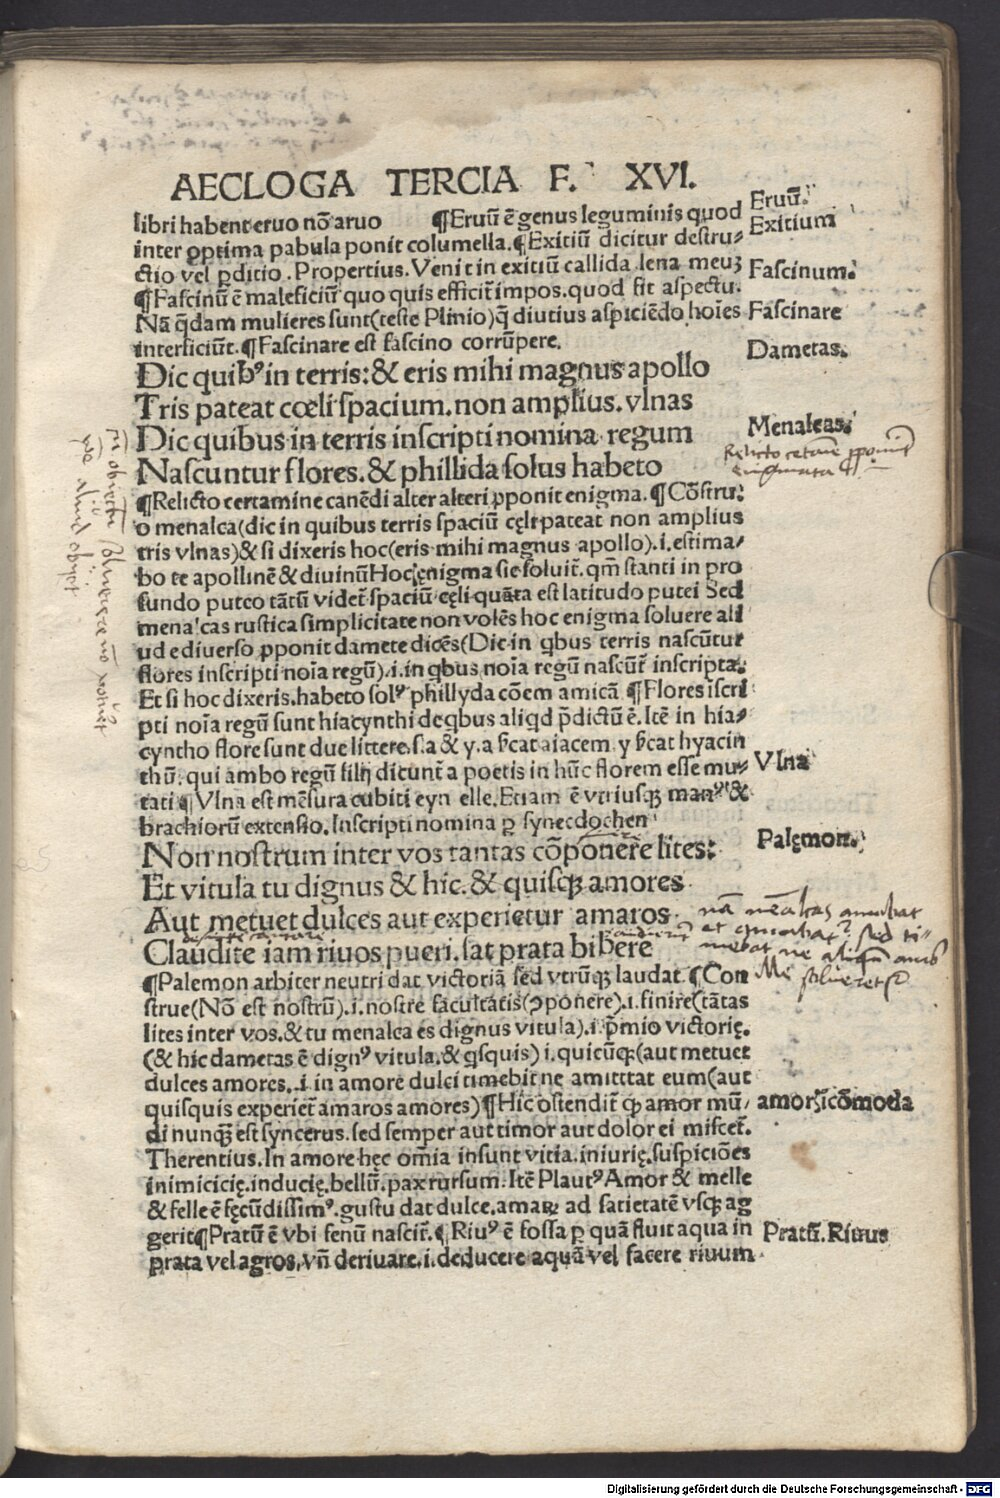 AECLOGA TERCIA F. XVI.
libri habent eruo nō aruo ¶Eruū ē genus leguminis quod
Eruū.
inter ꝑptima pabula ponit columella.¶Exitiū dicitur destru⸗
Exitium
ctio vel ꝑditio. Propertius. Venit in exitiū callida lena meuꝫ
Fascinum.
¶Fascinū ē maleficiū quo quis efficit̄ impos. quod fit aspectu.
Nā q̄dam mulieres sunt(teste Plinio)q̄ diutius aspiciēdo hoīes
Fascinare
interficiūt.¶Fascinare est fascino corrūpere.
Dametas.
Dic quibꝰ in terris:& eris mihi magnus apollo
Tris pateat cœli spacium. non amplius. vlnas
Dic quibus in terris inscripti nomina regum
Menalcas.
Nascuntur flores. & phillida solus habeto
Relicto
enigmata
¶Relicto certamine canēdi alter alteri ꝓponit enigma.¶Cōstru:
o menalca(dic in quibus terris spaciū cęli pateat non amplius
tris vlnas)& si dixeris hoc(eris mihi magnus apollo).i.estima⸗
bo te apollinē & diuinū Hoc ęnigma sic soluit̄. qm̄ stanti in pro
fundo puteo tātū videt̄ spaciū cęli quāta est latitudo putei Sed
menalcas rustica simplicitate non volēs hoc enigma soluere ali
ud e diuerso ꝓponit damete dicēs(Dic in qbus terris nascūtur
flores inscripti noīa regū).i.in qbus noīa regū nascūt̄ inscripta.
Et si hoc dixeris. habeto solꝰ phillyda cōem amicā ¶Flores iscri
pti noīa regū sunt hiacynthi de qbus aliqd p̄dictū ē. Itē in hia⸗
cyntho flore sunt due littere.s.a & y.a ſcat aiacem. y ſcat hyacin
thū. qui ambo regū filij dicunt̄ a poetis in hūc florem esse mu⸗
Vlna
tati ¶Vlna est mēsura cubiti eyn elle. Etiam ē vtriusqꝫ manꝰ &
brachiorū extensio. Inscripti nomina ꝑ synecdochen
Non nostrum inter vos tantas cōponere lites:
Palęmon.
Et vitula tu dignus & hic. & quisqꝫ amores
Aut metuet dulces aut experietur amaros
Claudite iam riuos pueri. sat prata bibere
¶Palemon arbiter neutri dat victoriā sed vtrūqꝫ laudat.¶Con
strue(Nō est nostrū).i.nostre facultatis(ꝯponere).i.finire(tātas
lites inter vos.& tu menalca es dignus vitula).i.p̄mio victorię.
(& hic dametas ē dignꝰ vitula.& qsquis) i.quicūqꝫ(aut metuet
dulces amores..i.in amore dulci timebit ne amittat eum(aut
quisquis experiet̄ amaros amores)¶Hic ostendit̄ ꝙ amor mū⸗
amorꝫ icōmoda
di nunqꝫ est syncerus. sed semper aut timor aut dolor ei miscet̄.
Therentius. In amore hęc om̄ia insunt vitia. iniurię. suspiciōes
inimicicię. inducię. bellū. pax rursum. Itē Plautꝰ Amor & melle
& felle ē fęcūdissimꝰ. gustu dat dulce. amaꝝ ad satietatē vsqꝫ ag
gerit¶Pratū ē vbi fenū nascit̄.¶Riuꝰ ē fossa ꝑ quā fluit aqua in
Pratū. Riuus
prata vel agros. vn̄ deriuare.i.deducere aquā vel facere riuum
Digitalisierung gefördert durch die Deutsche Forschungsgemeinschaft - DFG